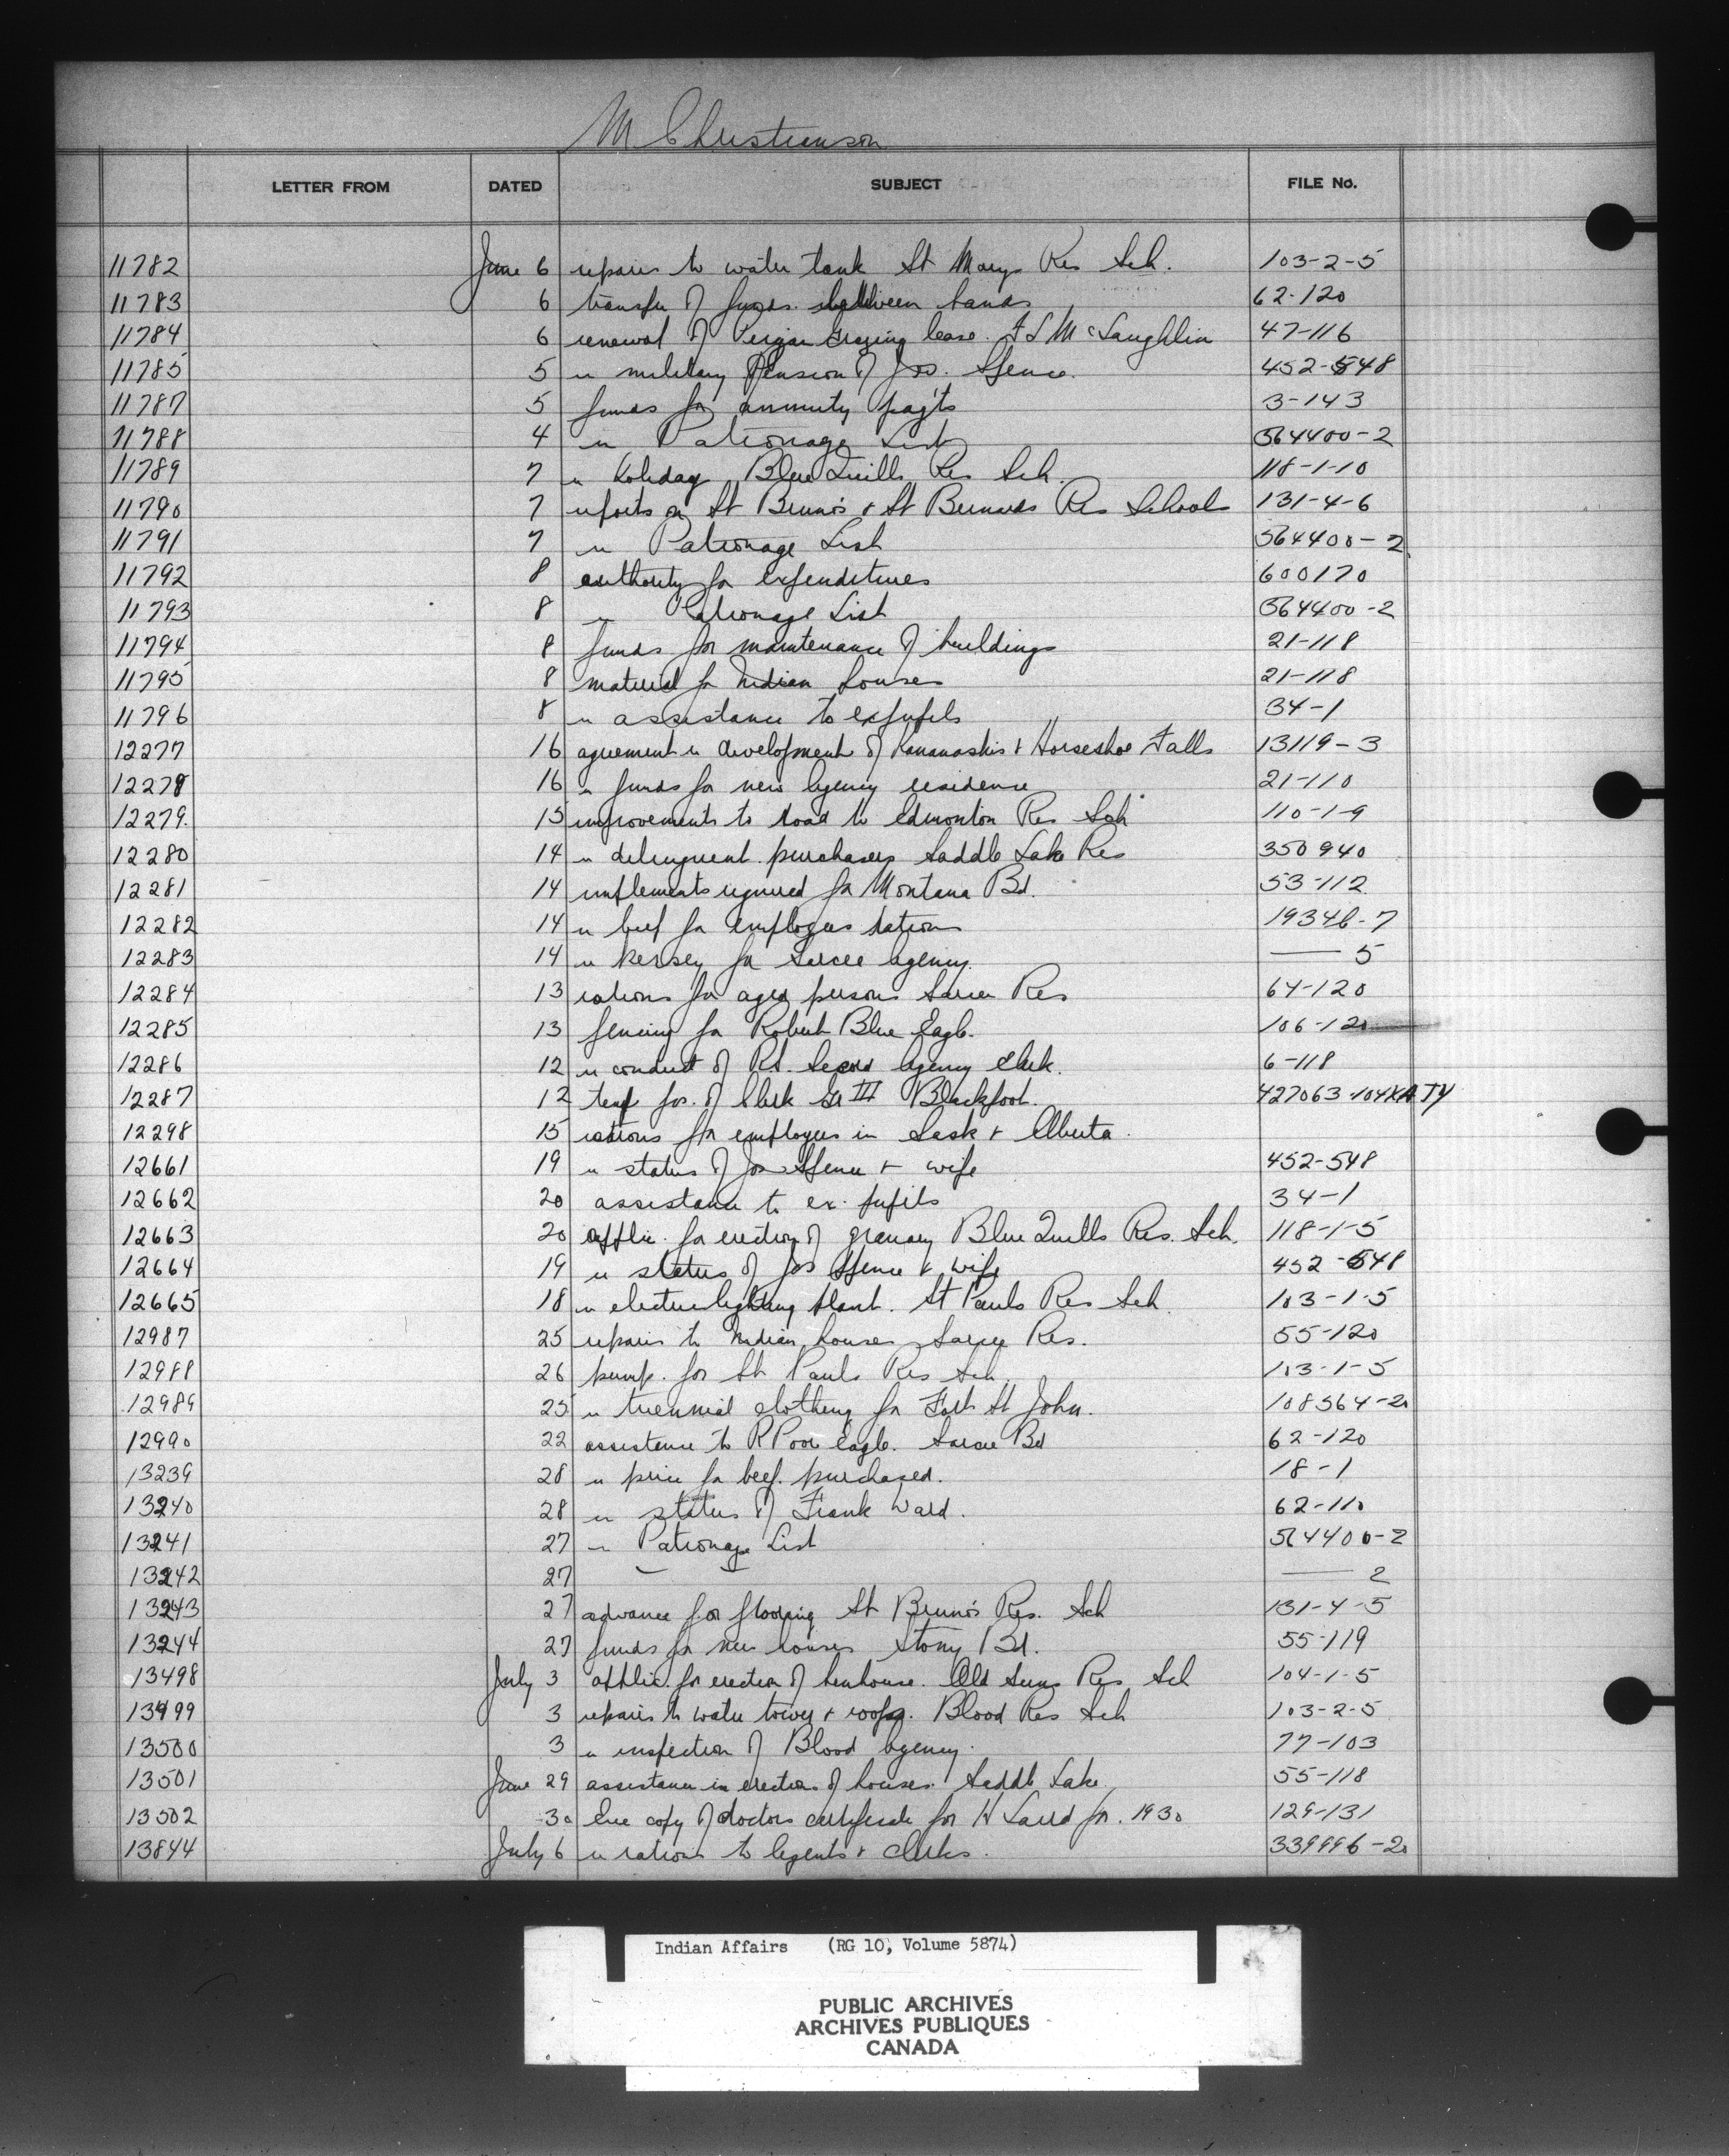 M Christianson
LETTER FROM DATED SUBJECT FILE No.
11782 June 6 repairs to water tank St Marys Res Sch. 103-2-5
11783 6 transfer of funds between bands 62-120
11784 6 renewal of Peigan Grazing lease. F L McLaughlin 47-116
11785 5 re military pension of Jos. Spence. 452-548
11787 5 funds for annuity pay'ts 3-143
11788 4 re Patronage List 564400-2
11789 7 re holiday Blue Quills Res Sch. 118-1-10
11790 7 reports on St Bruno's & St Bernards Res Schools 131-4-6
11791 7 re Patronage List 564400-2
11792 8 authority for expenditures 600170
11793 8 re Patronage List 564400-2
11794 8 funds for maintenance of buildings 21-118
11795 8 material for Indian houses 21-118
11796 8 re assistance to expupils 34-1
12277 16 agreement re development of Kananaskis & Horseshoe Falls 13119-3
12278 16 re funds for new Agency residence 21-110
12279. 15 improvements to road to Edmonton Res Sch 110-1-9
12280 14 re delinquent purchasers Saddle Lake Res 350940
12281 14 implements required for Montana Bd. 53-112
12282 14 re beef for employees rations 19346-7
12283 14 re kersey for Sarcee Agency. — 5
12284 13 rations for aged persons Sarcee Res 64-120
12285 13 fencing for Robert Blue Eagle. 106-120
12286 12 re conduct of Agency Clerk. 6-118
12287 12 temp pos. of Clerk Gr III Blackfoot. 427063-104XATY
12298 15 rations for employees in Sask & Alberta.
12661 19 re status of Jos Spence & wife 452-548
12662 20 assistance to ex. pupils 34-1
12663 20 applic. for erection of granary Blue Quills Res. Sch. 118-1-5
12664 19 re status of Jos Spence & wife 452-548
12665 18 re electric lighting plant. St Pauls Res Sch 103-1-5
12987 25 repairs to Indian houses Sarcee Res. 55-120
12988 26 pump. for St Pauls Res Sch. 103-1-5
12989 25 re triennial clothing for Fort St John. 108564-2
12990 22 assistance to R Poor Eagle. Sarcee Bd 62-120
13239 28 re price for beef purchased. 18-1
13240 28 re status of Frank Ward. 62-110
13241 27 re Patronage List 564400-2
13242 27 — — — 2
13243 27 advance for flooring St Bruno's Res. Sch 131-4-5
13244 27 funds for new houses Stony Bd. 55-119
13498 July 3 applic. for erection of henhouse. Old Suns Res Sch 104-1-5
13499 3 repairs to water tower & roofs. Blood Res Sch 103-2-5
13500 3 re inspection of Blood Agency. 77-103
13501 June 29 assistance in erection of houses. Saddle Lake. 55-118
13502 30 copy of doctors certificate for H Laird for. 1930 129-131
13844 July 6 re rations to Agents & Clerks. 339996-2
Indian Affairs (RG 10, Volume 5874)
PUBLIC ARCHIVES
ARCHIVES PUBLIQUES
CANADA